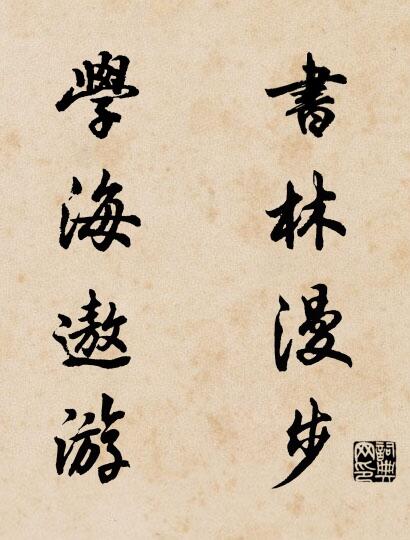 書林漫步
學海遨游
詞典网印